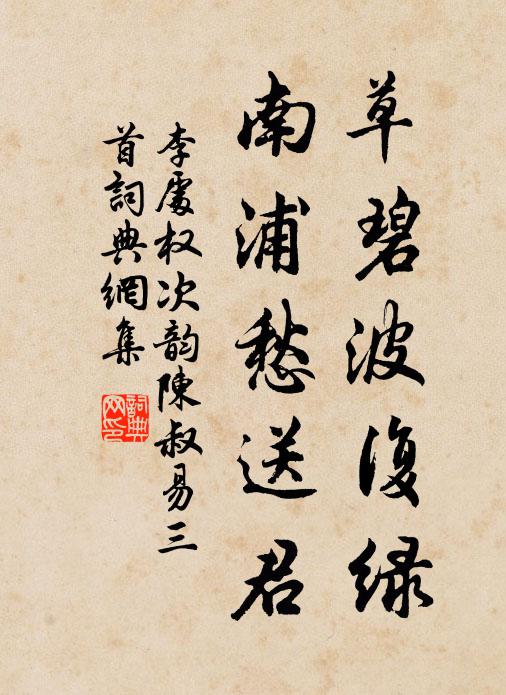 草碧波復緑
南浦愁送君
李處权次韵陳叔易三
首詞典網集
詞典
网印